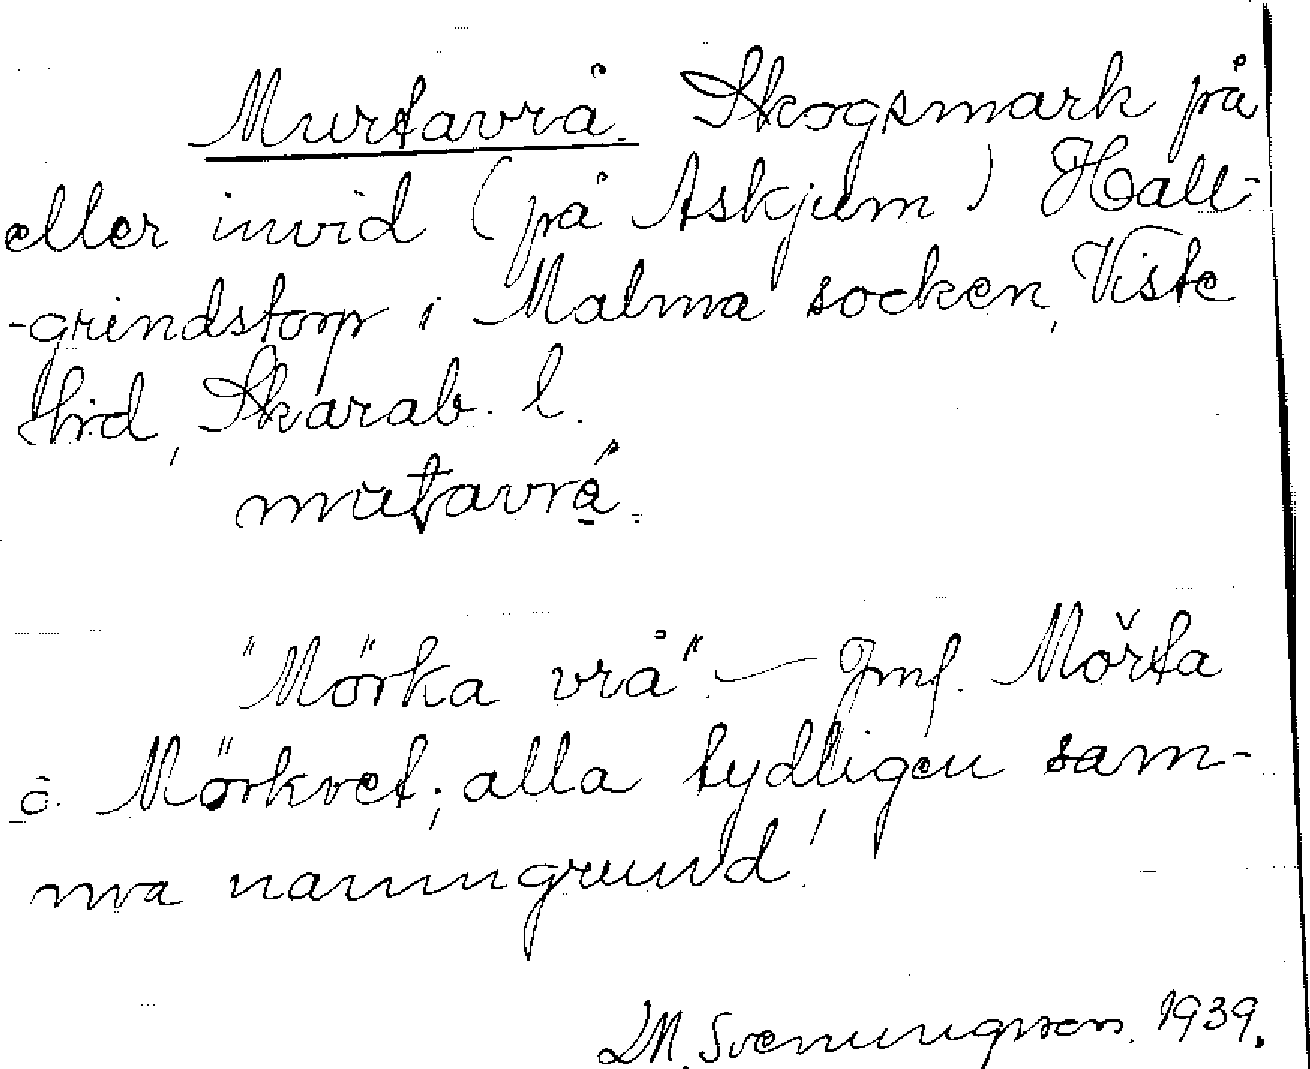 Murtavrå. Skogsmark på
eller invid (på Askjum) Hall-
-grindstorp i Malma socken, Viste
hrd, Skarab. l.
mutavrå.
"Mörka vrå". — Jmf. Mörta
o. Mörkret; alla tydligen sam-
ma namngrund!
LM. Svenungsson. 1939.